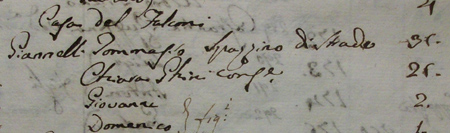 4
Casa del Falconi
Giannelli Tommaso Spazzino di strade 31.
Chiara Conse. 21.
Giovanni 2.
Domenico figi